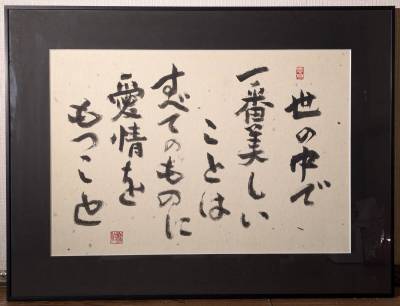 世の中で
一番美しい
ことは
すべてのものに
愛情を
もつこと也